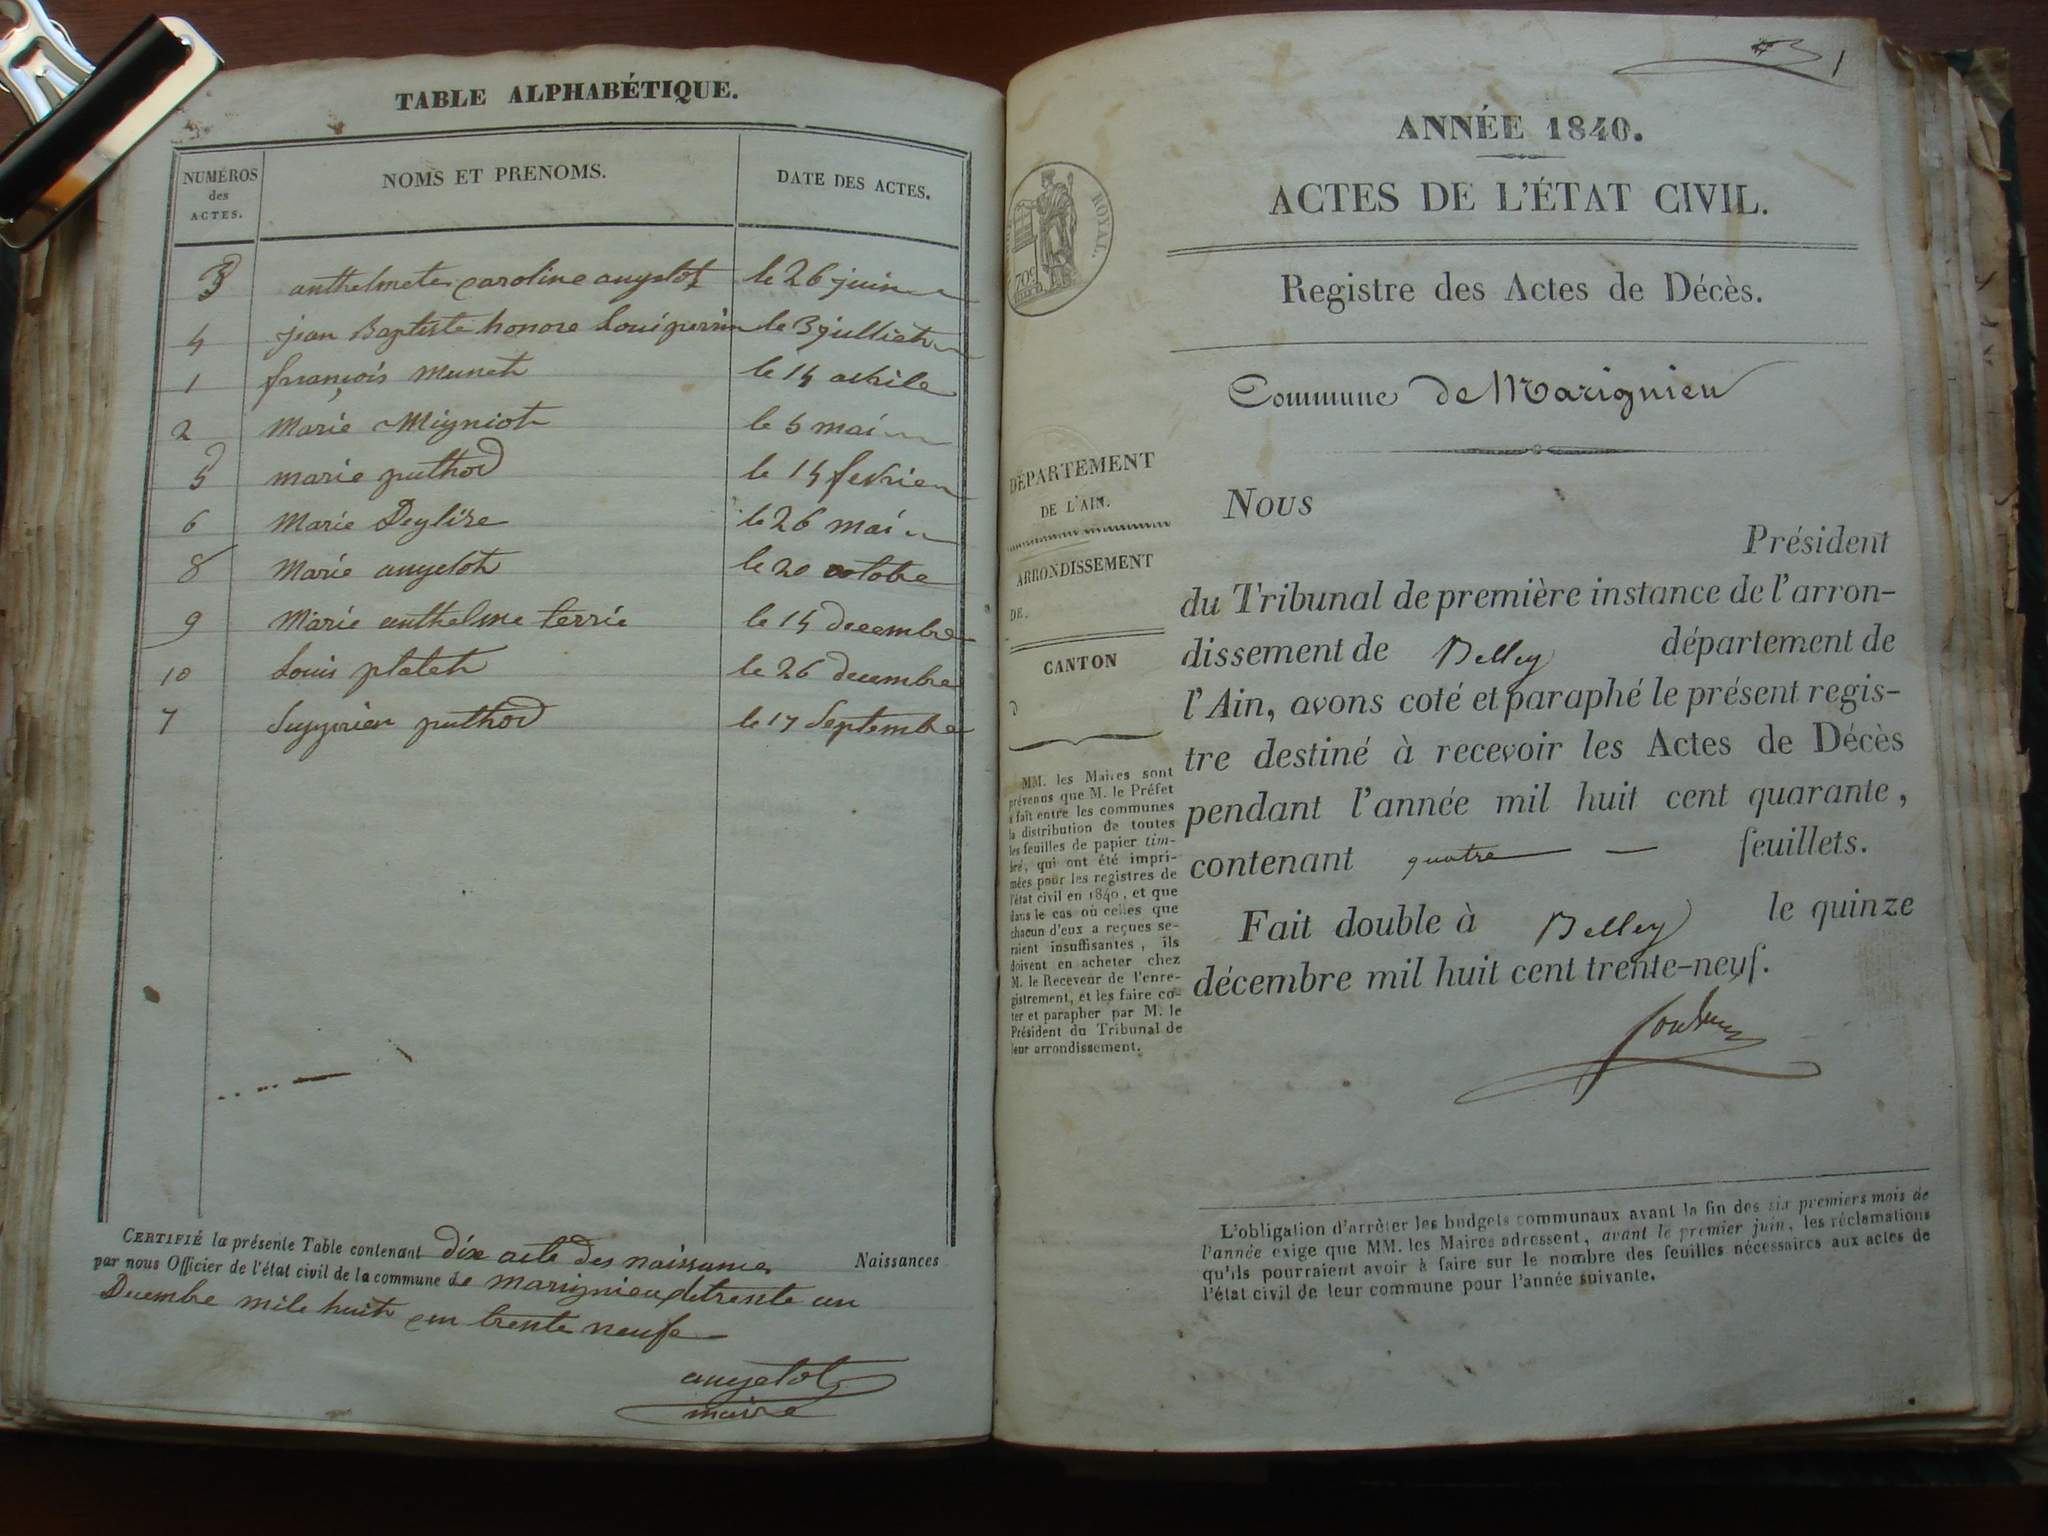 TABLE ALPHABÉTIQUE.
NUMÉROS des ACTES.
NOMS ET PRENOMS.
DATE DES ACTES.
3 anthelmete caroline angelot le 26 juin
4 jean Baptiste honore Loui perrin le 3 julliet
1 françois munet le 14 avrile
2 Marie Migniot le 5 mai
5 marie puthod le 14 fevrier
6 Marie Deglise le 26 mai
8 Marie angelot le 20 octobre
9 Marie anthelme terrie le 14 decembre
10 Louis platet le 26 decembre
7 puthod le 17 Septembre
CERTIFIÉ la présente Table contenant dix acte des naissance Naissances
par nous Officier de l'état civil de la commune de marignieu le trente un
Decembre mile huit cen trente neufe
angelot
maire
1
ANNÉE 1840.
ACTES DE L'ÉTAT CIVIL.
ROYAL.
70c
Registre des Actes de Décès.
Commune de Marignieu
DÉPARTEMENT
DE L'AIN.
ARRONDISSEMENT
DE
CANTON
d
MM. les Maires sont
prévenus que M. le Préfet
a fait entre les communes
la distribution de toutes
les feuilles de papier tim-
bré, qui ont été impri-
mées pour les registres de
l'état civil en 1840, et que
dans le cas où celles que
chacun d'eux a reçues se-
raient insuffisantes, ils
doivent en acheter chez
M. le Receveur de l'enre-
gistrement, et les faire co-
ter et parapher par M. le
Président du Tribunal de
leur arrondissement.
Nous
Président
du Tribunal de première instance de l'arron-
dissement de Belley département de
l'Ain, avons coté et paraphé le présent regis-
tre destiné à recevoir les Actes de Décès
pendant l'année mil huit cent quarante,
contenant quatre feuillets.
Fait double à Belley le quinze
décembre mil huit cent trente-neuf.
L'obligation d'arrêter les budgets communaux avant la fin des six premiers mois de
l'année exige que MM. les Maires adressent, avant le premier juin, les réclamations
qu'ils pourraient avoir à faire sur le nombre des feuilles nécessaires aux actes de
l'état civil de leur commune pour l'année suivante.